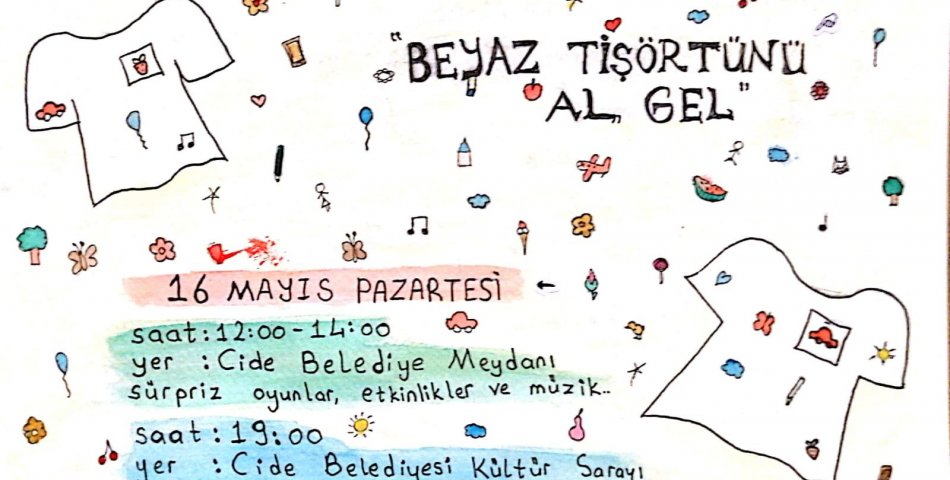 "BEYAZ TİŞÖRTÜNÜ
AL GEL"
16 MAYIS PAZARTESİ
saat:12:00-14:00
yer : Cide Belediye Meydanı
sürpriz oyunlar, etkinlikler ve müzik..
saat:19:00
yer : Cide Belediyesi Kültür Sarayı